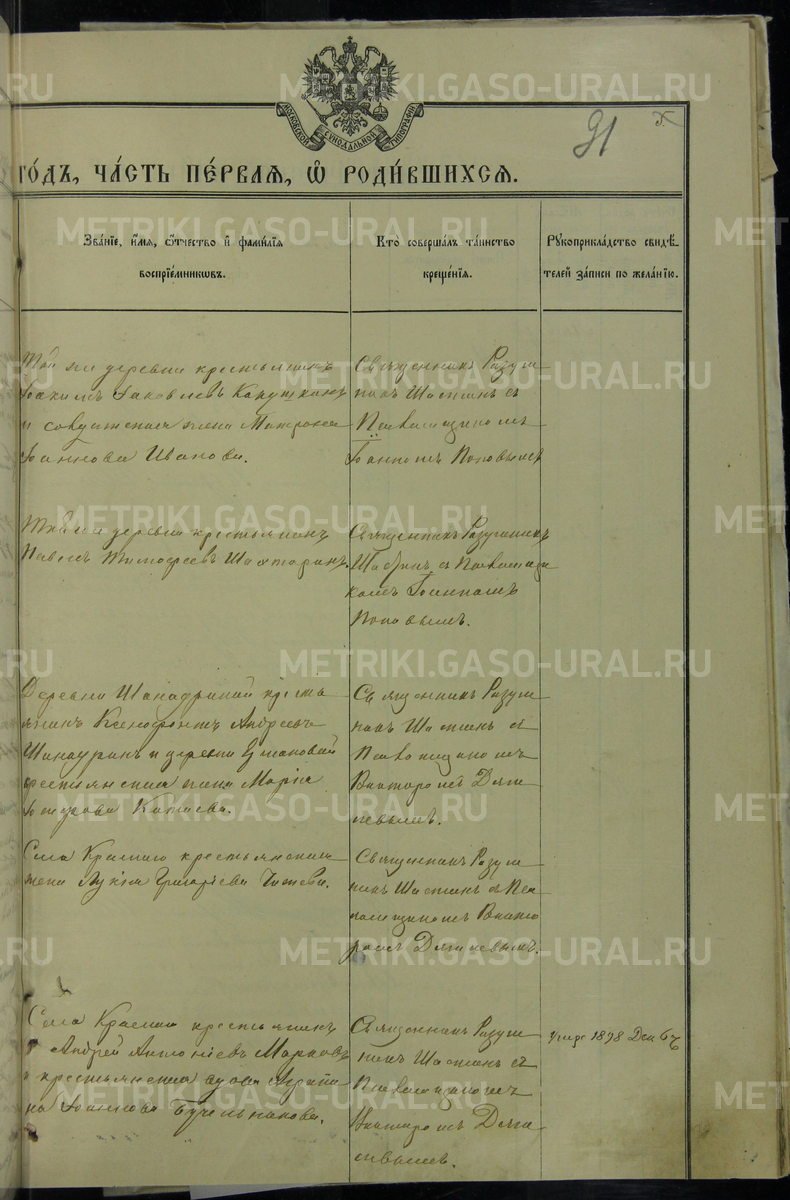 МОСКОВСКОЙ СѴНОДАЛЬНОЙ ТИПОГРАФІИ
91
ГО́ДЪ, ЧА́СТЬ ПЕ́РВАЯ, Ѽ РОДИ́ВШИХСЯ.
Зва́нїе, и҆́мя, ѻ҆́тчество и҆ фами́лїя
воспрїе́мникѡвъ.
Кто̀ соверша́лъ та́инство
креще́нїя.
Рꙋкоприкла́дство свидѣ́-
телей за́писи по жела́нїю.
Той же деревни крестьянинъ
Іоакимъ Іаковлевъ
и крестьянская жена Матрона
Іоаннова Иванова.
Священникъ Разум
никъ Шастинъ съ
Псаломщикомъ
Іоанномъ Поповымъ
деревни крестьянинъ
Павелъ Тимофеевъ
Священникъ Разумникъ
Шастинъ съ Псаломщи
комъ Іоанномъ
Поповымъ.
Деревни Шанауриной кресть
янинъ Ксенофонтъ Андреевъ
Шанауринъ и деревни Ермаковой
крестьянская жена Марія
Петрова Катаева.
Священникъ Разум
никъ Шастинъ съ
Псаломщикомъ
Викторомъ Дяги
левымъ.
Села Краснаго крестьянская
жена Лукія Григоріева
Священникъ Разум
никъ Шастинъ съ Пса
ломщикомъ Викто
ромъ Дягилевымъ.
Села Краснаго крестьянинъ
Андрей Антоніевъ Марковъ
и крестьянская вдова Агрипи
на Іоаннова
Священникъ Разум
никъ Шастинъ съ
Псаломщикомъ
Викторомъ Дяги
левымъ.
умре 1898 Дек 6
METRIKI.GASO-URAL.RU